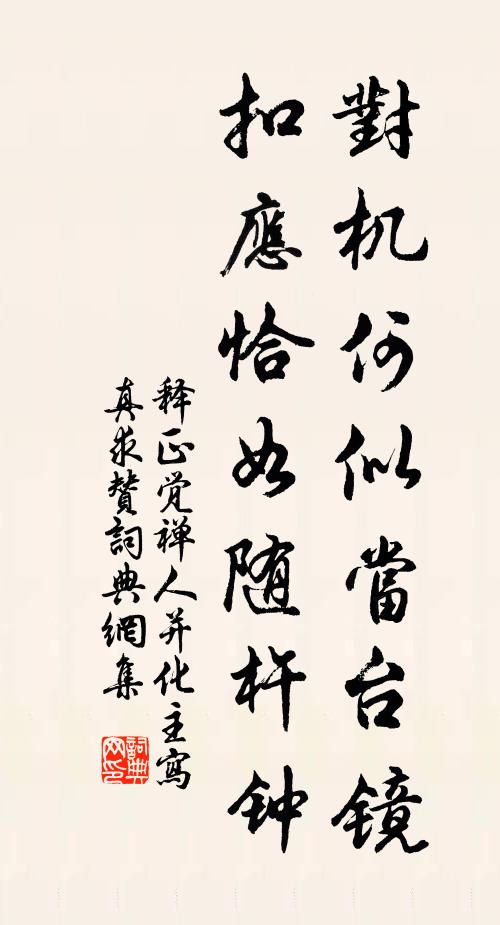 對机何似當台镜
扣應恰如随杵钟
释正觉禅人并化主寫
真求赞詞典網集
詞典
网印